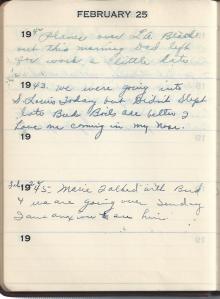 FEBRUARY 25
19 Plane over La Blade
out this morning Dad left
for work a little late
1943. we were going into
St Louis Today but Didn't Slept
late Buds Boils are better I
have me coming in my Nose.
19
1945- Marie Talked with Bud
& we are going over Sunday
I am anxious to see him
19